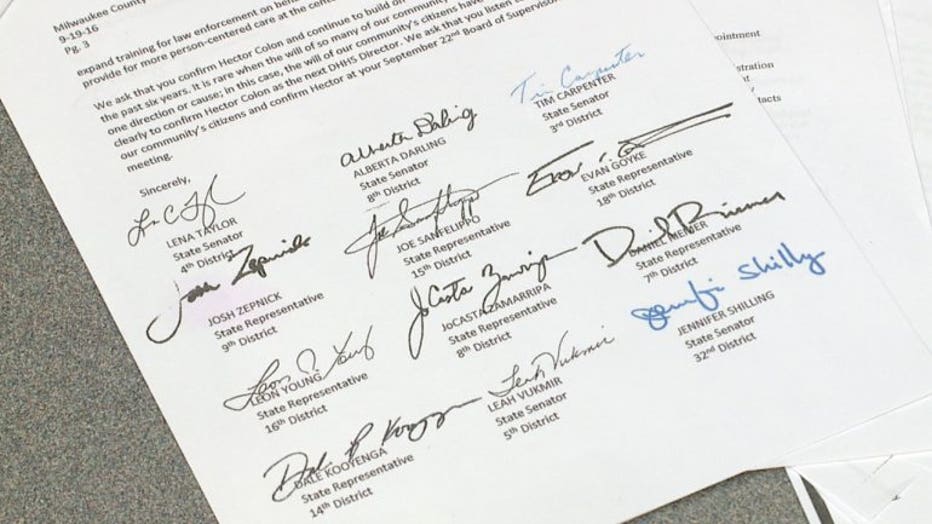 Milwaukee County
9-19-16
Pg. 3
expand training for law enforcement on
provide for more person-centered care at the
We ask that you confirm Hector Colon and continue to build
the past six years. It is rare when the will of so many of our community
one direction or cause; in this case, the will of our community's citizens have
clearly to confirm Hector Colon as the next DHHS Director. We ask that you listen
our community's citizens and confirm Hector at your September 22nd Board of Supervisor
meeting.
Sincerely,
Tim Carpenter
TIM CARPENTER
State Senator
3rd District
Alberta Darling
ALBERTA DARLING
State Senator
8th District
EVAN GOYKE
State Representative
18th District
LENA TAYLOR
State Senator
4th District
Joe Sanfelippo
JOE SANFELIPPO
State Representative
15th District
DANIEL RIEMER
State Representative
7th District
Josh Zepnick
JOSH ZEPNICK
State Representative
9th District
JoCasta Zamarripa
JoCASTA ZAMARRIPA
State Representative
8th District
JENNIFER SHILLING
State Senator
32nd District
Leon D. Young
LEON YOUNG
State Representative
16th District
Leah Vukmir
LEAH VUKMIR
State Senator
5th District
DALE KOOYENGA
State Representative
14th District